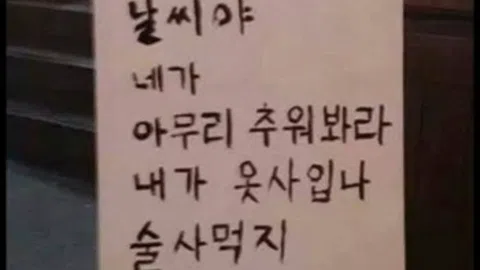 날씨야
네가
아무리 추워봐라
내가 옷사입나
술사먹지